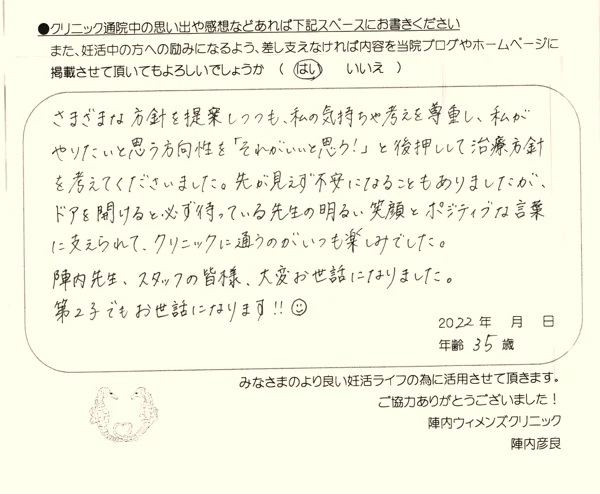 ●クリニック通院中の思い出や感想などあれば下記スペースにお書きください
また、妊活中の方への励みになるよう、差し支えなければ内容を当院ブログやホームページに
掲載させて頂いてもよろしいでしょうか （ はい　いいえ ）
さまざまな方針を提案しつつも、私の気持ちや考えを尊重し、私が
やりたいと思う方向性を「それがいいと思う!」と後押しして治療方針
を考えてくださいました。先が見えず不安になることもありましたが、
ドアを開けると必ず待っている先生の明るい笑顔とポジティブな言葉
に支えられて、クリニックに通うのがいつも楽しみでした。
陣内先生、スタッフの皆様、大変お世話になりました。
第2子でもお世話になります!!
2022年　月　日
年齢 35歳
みなさまのより良い妊活ライフの為に活用させて頂きます。
ご協力ありがとうございました！
陣内ウィメンズクリニック
陣内彦良